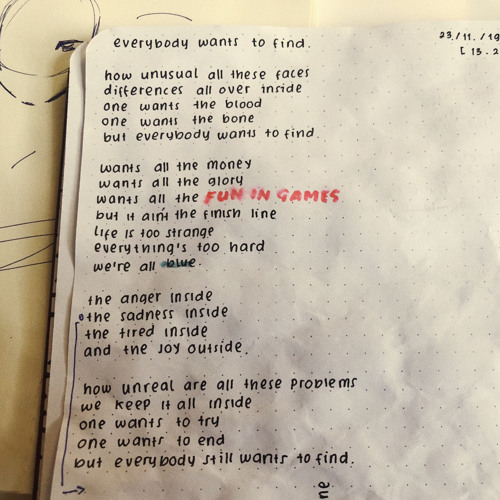 everybody wants to find.
23./11./19
[ 13.2
how unusual all these faces
differences all over inside
one wants the blood
one wants the bone
but everybody wants to find.
wants all the money
wants all the glory
wants all the FUN IN GAMES
but it ain't the finish line
life is too strange
everything's too hard
we're all blue.
the anger inside
the sadness inside
the tired inside
and the joy outside.
how unreal are all these problems
we keep it all inside
one wants to try
one wants to end
but everybody still wants to find.
ne